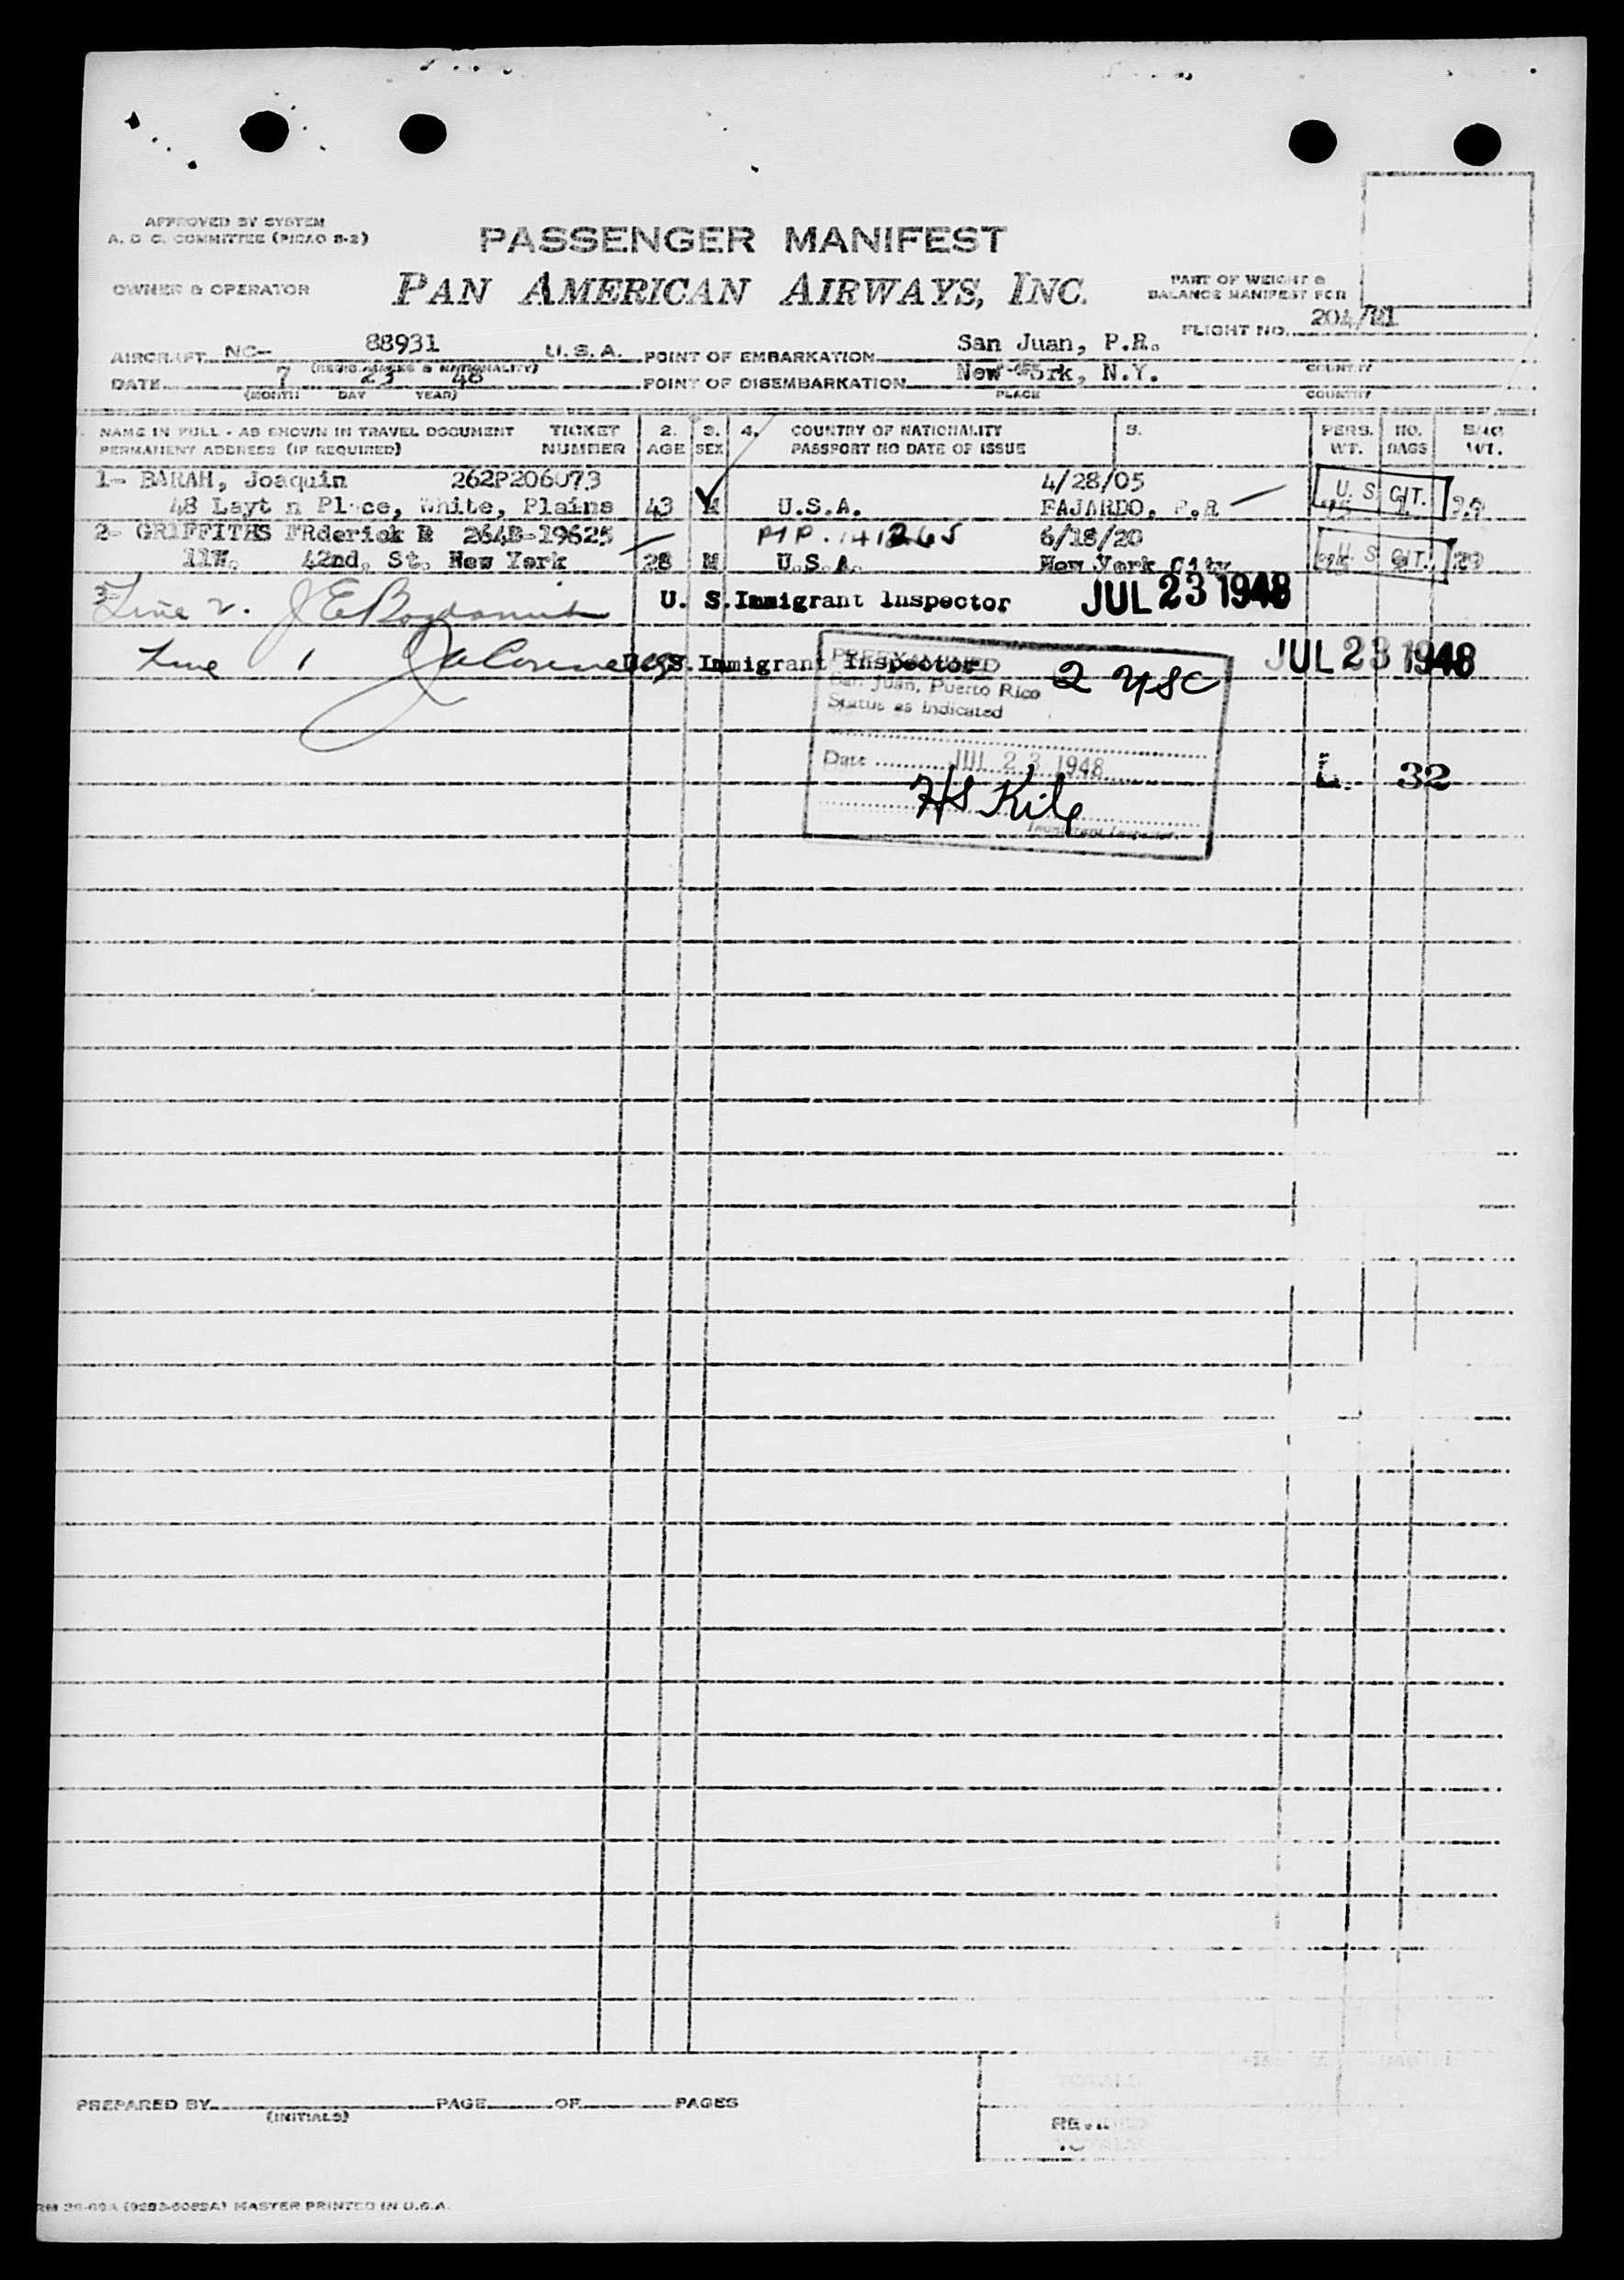 APPROVED BY SYSTEM
A. O C. COMMITTEE (PICAO S-2)
PASSENGER MANIFEST
OWNER & OPERATOR
PAN AMERICAN AIRWAYS, INC.
PART OF WEIGHT &
BALANCE MANIFEST FOR
FLIGHT NO. 204/
AIRCRAFT NC- 88931 U.S.A. POINT OF EMBARKATION San Juan, P.R.
(REGIS. MARKS & NATIONALITY) COUNTRY
DATE 7 23 48 POINT OF DISEMBARKATION New rk, N.Y.
(MONTH DAY YEAR) PLACE COUNTRY
NAME IN FULL - AS SHOWN IN TRAVEL DOCUMENT TICKET 2. 3. 4. COUNTRY OF NATIONALITY 5. PERS. NO. BAG
PERMANENT ADDRESS (IF REQUIRED) NUMBER AGE SEX PASSPORT NO DATE OF ISSUE WT. BAGS WT.
1- BARAH, Joaquin 262P206073 4/28/05
48 Layt n Pl ce, White, Plains 43 M U.S.A. FAJARDO, P.R U. S. CIT.
2- GRIFFITHS FRderick R 264B-19625 PIP. 141265 6/18/20
11W. 42nd. St. New York 28 M U.S.A. New York City U. S. CIT.
3-
Line 2. U. S. Immigrant Inspector JUL 23 1948
Line 1 U. S. Immigrant Inspector JUL 23 1948
PREEXAMINED
San Juan, Puerto Rico 2 USC
Status as indicated
Date JUL 23 1948
L. 32
HS Kile
Immigrant Inspector
PREPARED BY PAGE OF PAGES
(INITIALS)
TOTALS
RM 28-09A (9283-5082A) MASTER PRINTED IN U.S.A.